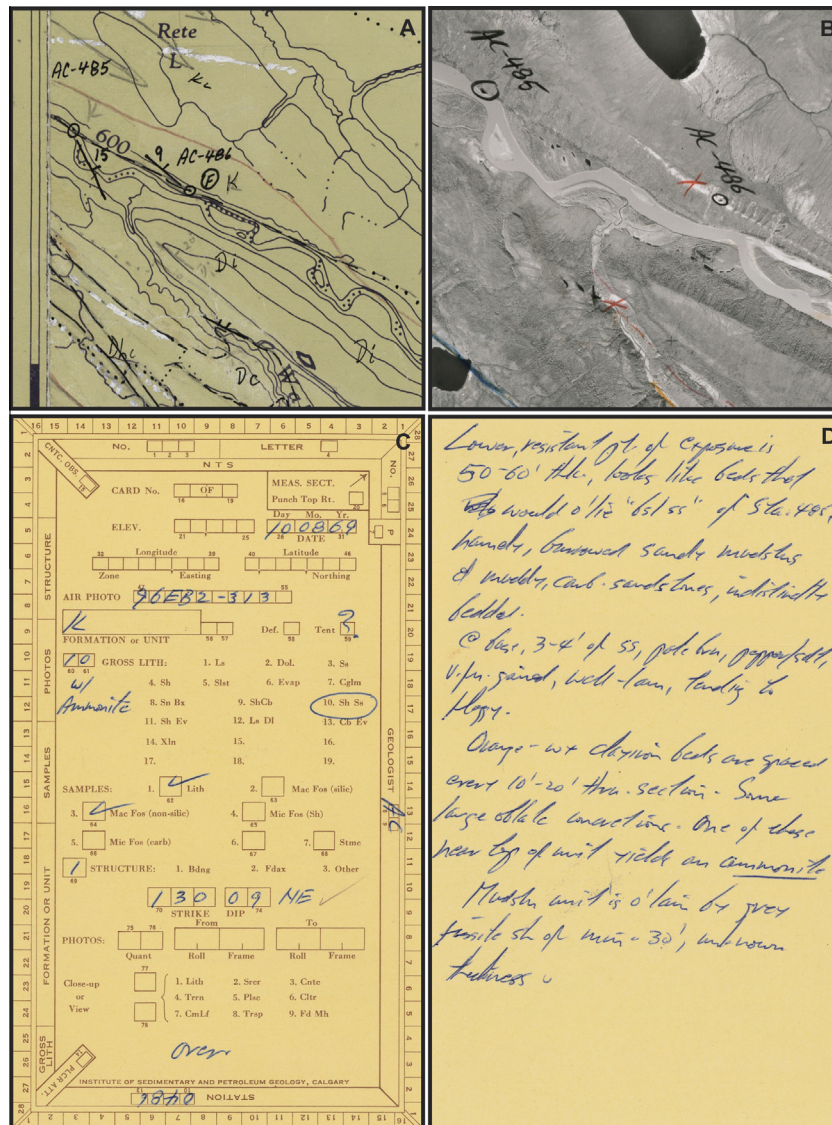 A
Rete
L
Kc
AC-485
K
600
9
AC-486
15
F
K
Di
Di
Dc
Dhi
B
AC-485
AC-486
C
16 15 14 13 12 11 10 9 8 7 6 5 4 3 2 1
NO.
LETTER
NTS
CNTC. OBS.
CARD No. OF
MEAS. SECT.
Punch Top Rt.
ELEV.
Day Mo. Yr.
100869
DATE
Longitude Latitude
Zone Easting Northing
AIR PHOTO
313
K
Def. Tent ?
FORMATION or UNIT
10 GROSS LITH: 1. Ls 2. Dol. 3. Ss
w/ 4. Sh 5. Slst 6. Evap 7. Cglm
Ammonite 8. Sn Bx 9. ShCb 10. Sh Ss
11. Sh Ev 12. Ls Dl 13. Cb Ev
14. Xln 15. 16.
17. 18. 19.
SAMPLES: 1. Lith 2. Mac Fos (silic)
3. Mac Fos (non-silic) 4. Mic Fos (Sh)
5. Mic Fos (carb) 6. 7. Stme
1 STRUCTURE: 1. Bdng 2. Fdax 3. Other
130 09 NE
STRIKE DIP
From To
PHOTOS:
Quant Roll Frame Roll Frame
Close-up 1. Lith 2. Srcr 3. Cntc
or 4. Trrn 5. Plsc 6. Cltr
View 7. CmLf 8. Trsp 9. Fd Mh
over.
INSTITUTE OF SEDIMENTARY AND PETROLEUM GEOLOGY, CALGARY
PLCR ATT.
STATION
0486
STRUCTURE
PHOTOS
SAMPLES
FORMATION OR UNIT
GROSS LITH
NO.
P
GEOLOGIST
AC
D
Lower, resistant pt. of exposure is
50-60' thk., looks like beds that
would o'lie "bsl ss" of Sta. 485,
namely, burrowed sandy mudstns
& muddy, carb. sandstones, indistinctly
bedded.
@ base, 3-4' of ss, pale brn, pepper/salt,
v.fn. grained, well-lam, tending to
flaggy.
Orange-wx clayiron beds are spaced
every 10'-20' thru. section. Some
large oblate concretions. One of these
near top of unit yields an ammonite
Mudstn unit is o'lain by grey
fissile sh of min - 30', unknown
thickness